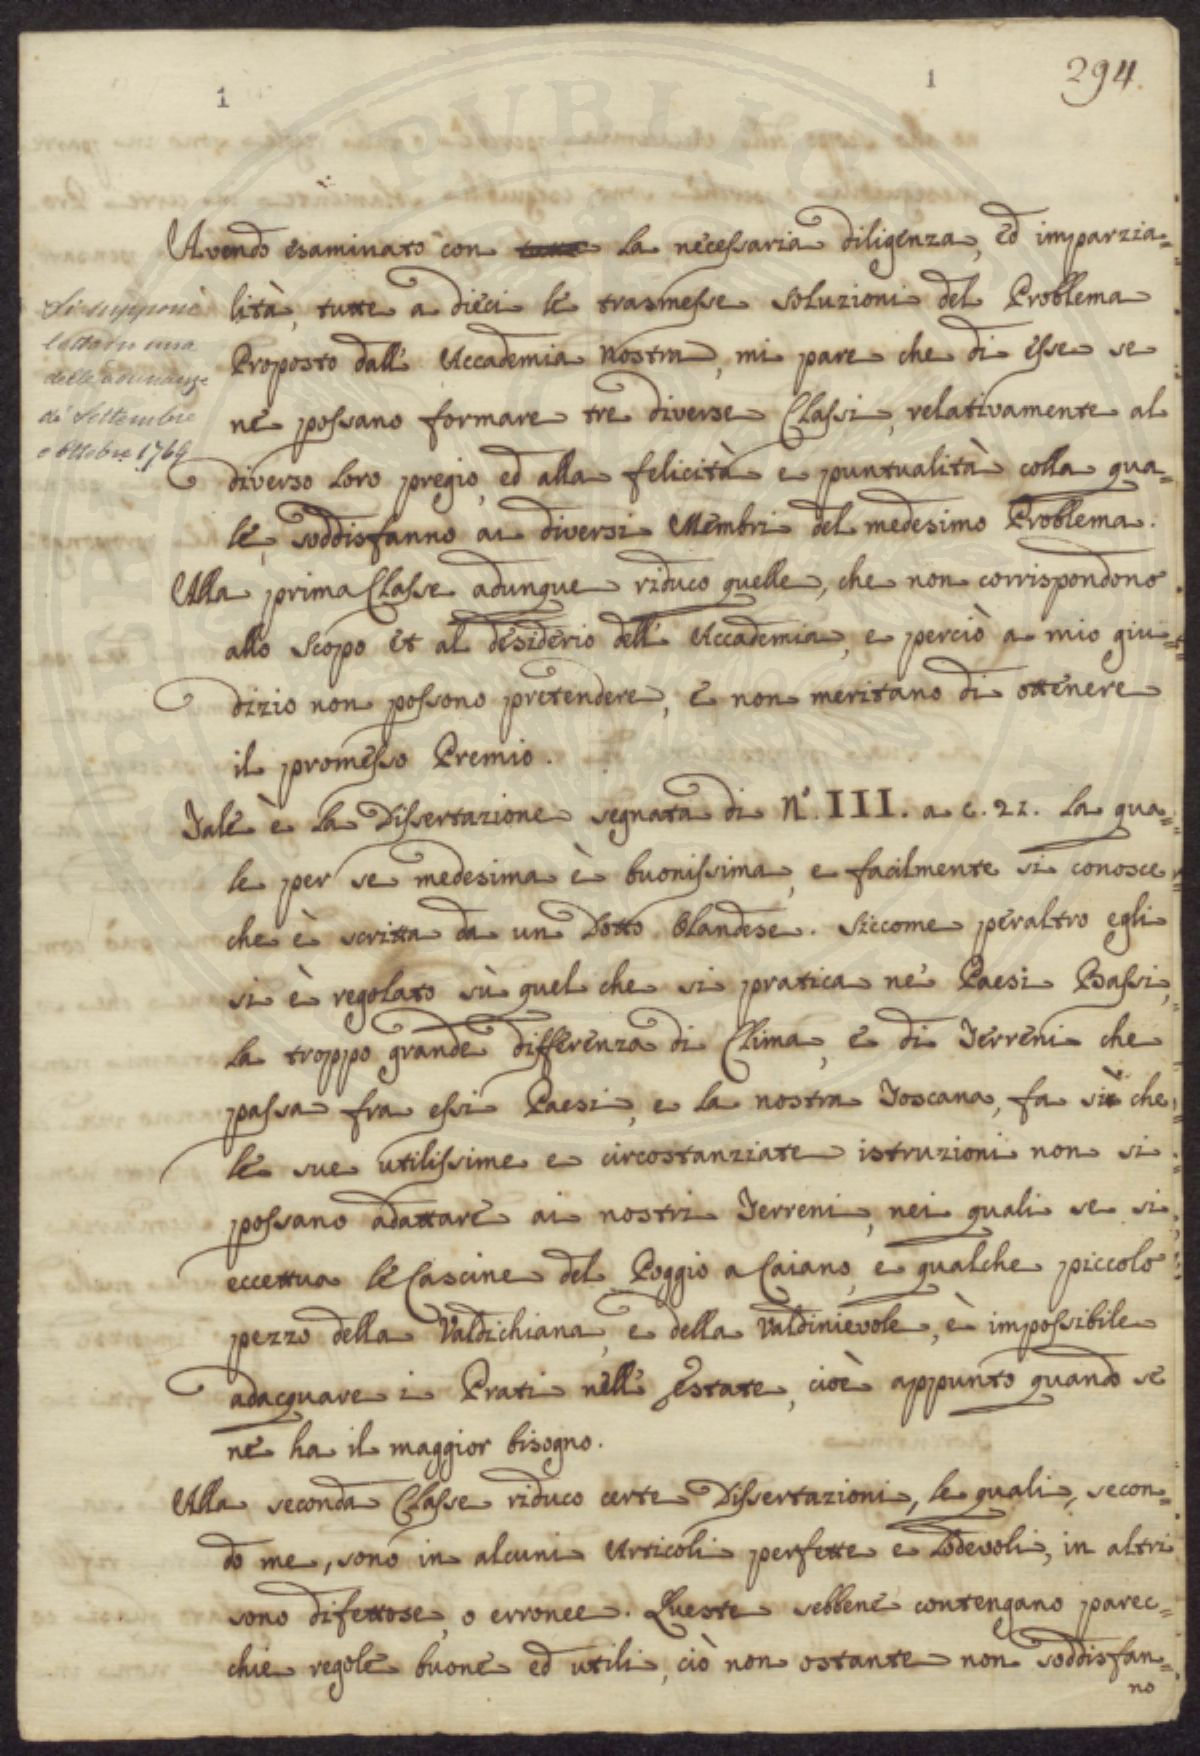 1
1
394.
Avendo esaminato con tutte la necessaria diligenza, ed imparzia=
lità, tutte a dieci le trasmesse soluzioni del Problema
Proposto dall' Accademia nostra, mi pare che di esse se
ne possano formare tre diverse Classi, relativamente al
diverso loro pregio, ed alla felicità e puntualità colla qua=
le, soddisfanno ai diversi Membri del medesimo Problema.
Si suppone
letta in una
delle adunanze
di Settembre
o Ottobre 1769
Alla prima Classe adunque riduco quelle, che non corrispondono
allo scopo et al desiderio dell' Accademia, e perciò a mio giu=
dizio non possono pretendere, e non meritano di ottenere
il promesso Premio.
Tale è la Dissertazione segnata di N.° III. a c. 21. la qua=
le per se medesima è buonissima, e facilmente si conosce
che è scritta da un Dotto Olandese. Siccome peraltro egli
si è regolato sù quel che si pratica ne' Paesi Bassi,
la troppo grande differenza di Clima, e di Terreni che
passa fra essi Paesi, e la nostra Toscana, fa sì che
le sue utilissime e circostanziate istruzioni non si
possano adattare ai nostri Terreni, nei quali se si
eccettua le Cascine del Poggio a Caiano, e qualche piccolo
pezzo della Valdichiana, e della Valdinievole, è impossibile
adacquare i Prati nell' Estate, cioè appunto quando se
ne ha il maggior bisogno.
Alla seconda Classe riduco certe Dissertazioni, le quali, secon=
do me, sono in alcuni Articoli perfette e lodevoli, in altri
sono difettose, o erronee. Queste sebbene contengano parec=
chie regole buone ed utili, ciò non ostante non soddisfan=
no